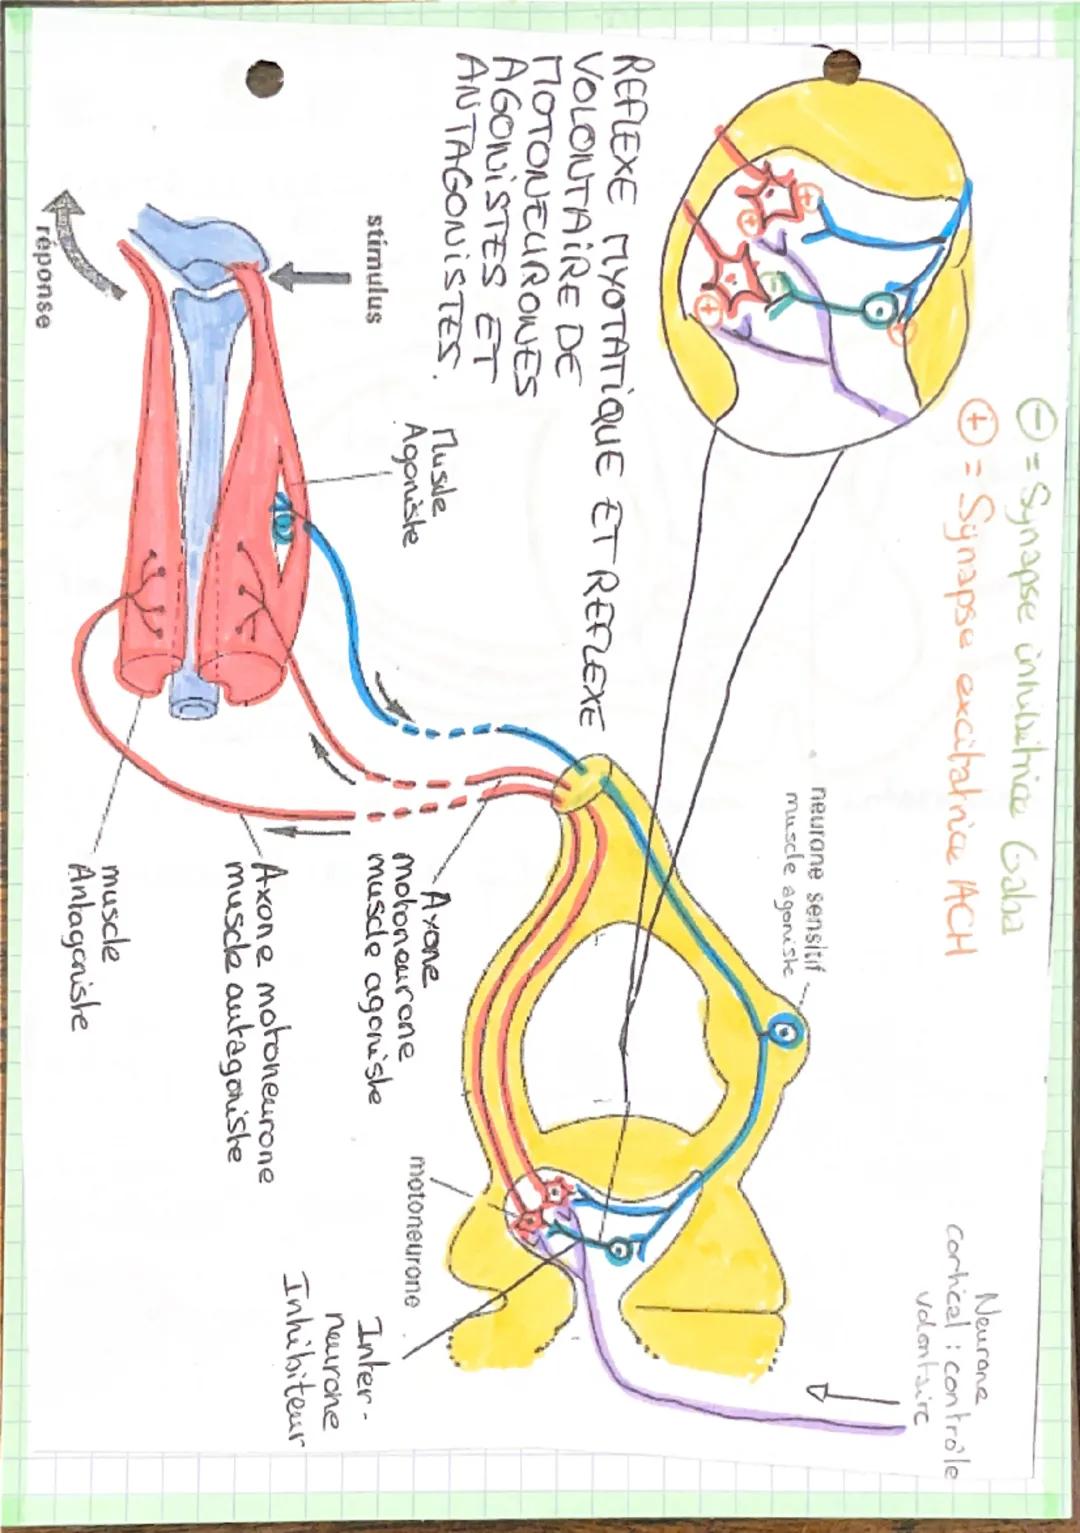 ⊖ = Synapse inhibitrice Gaba
⊕ = Synapse excitatrice ACH
REFLEXE MYOTATIQUE ET REFLEXE
VOLONTAIRE DE
MOTONEURONES
AGONISTES ET
ANTAGONISTES.
Neurone
cortical : contrôle
volontaire
neurone sensitif
muscle agoniste
stimulus
réponse
Muscle
Agoniste
Axone
motoneurone
muscle agoniste
Axone motoneurone
muscle antagoniste
muscle
Antagoniste
motoneurone
Inter-
neurone
Inhibiteur